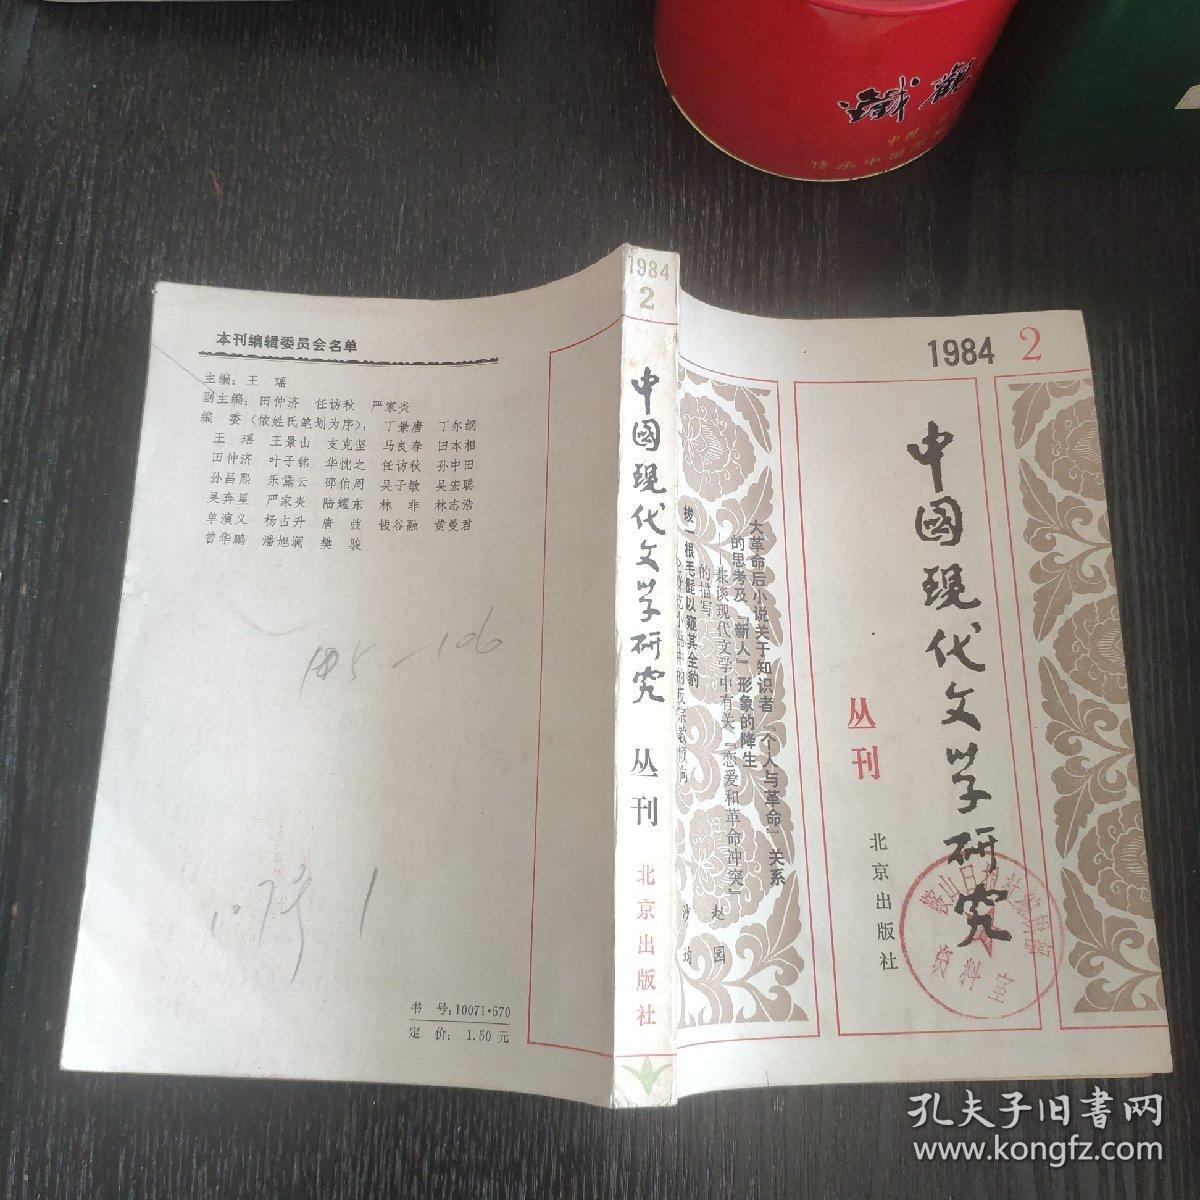 本刊编辑委员会名单
主编：王 瑶
副主编：田仲济 任访秋 严家炎
编 委（依姓氏笔划为序）：丁景唐 丁尔纲
王 瑶 王景山 支克坚 马良春 田本相
田仲济 叶子铭 华忱之 任访秋 孙中田
孙昌熙 乐黛云 邵伯周 吴子敏 吴宏聪
吴奔星 严家炎 陆耀东 林 非 林志浩
单演义 杨占升 唐 弢 钱谷融 黄曼君
曾华鹏 潘旭澜 樊 骏
书 号：10071·570
定 价： 1.50 元
1984
2
中國現代文学研究
丛刊
北京出版社
1984 2
中國現代文学研究
丛刊
北京出版社
大革命后小说关于知识者“个人与革命”关系
的思考及“新人”形象的降生
——兼谈现代文学中有关“恋爱和革命冲突”
的描写
赵园
拔一根毛既以窥其全豹
资料室
鐵觀
中國
传承中国
孔夫子旧书网
www.kongfz.com